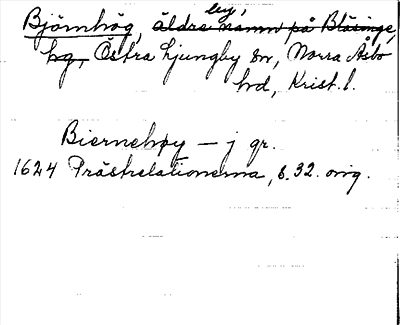 by,
Björnhög, äldre namn på Blåsinge,
hg, Östra Ljungby sn, Norra Åsbo
hd, Krist. l.
Biernehøy – j gr.
1624 Prästrelationerna, s. 32. orig.